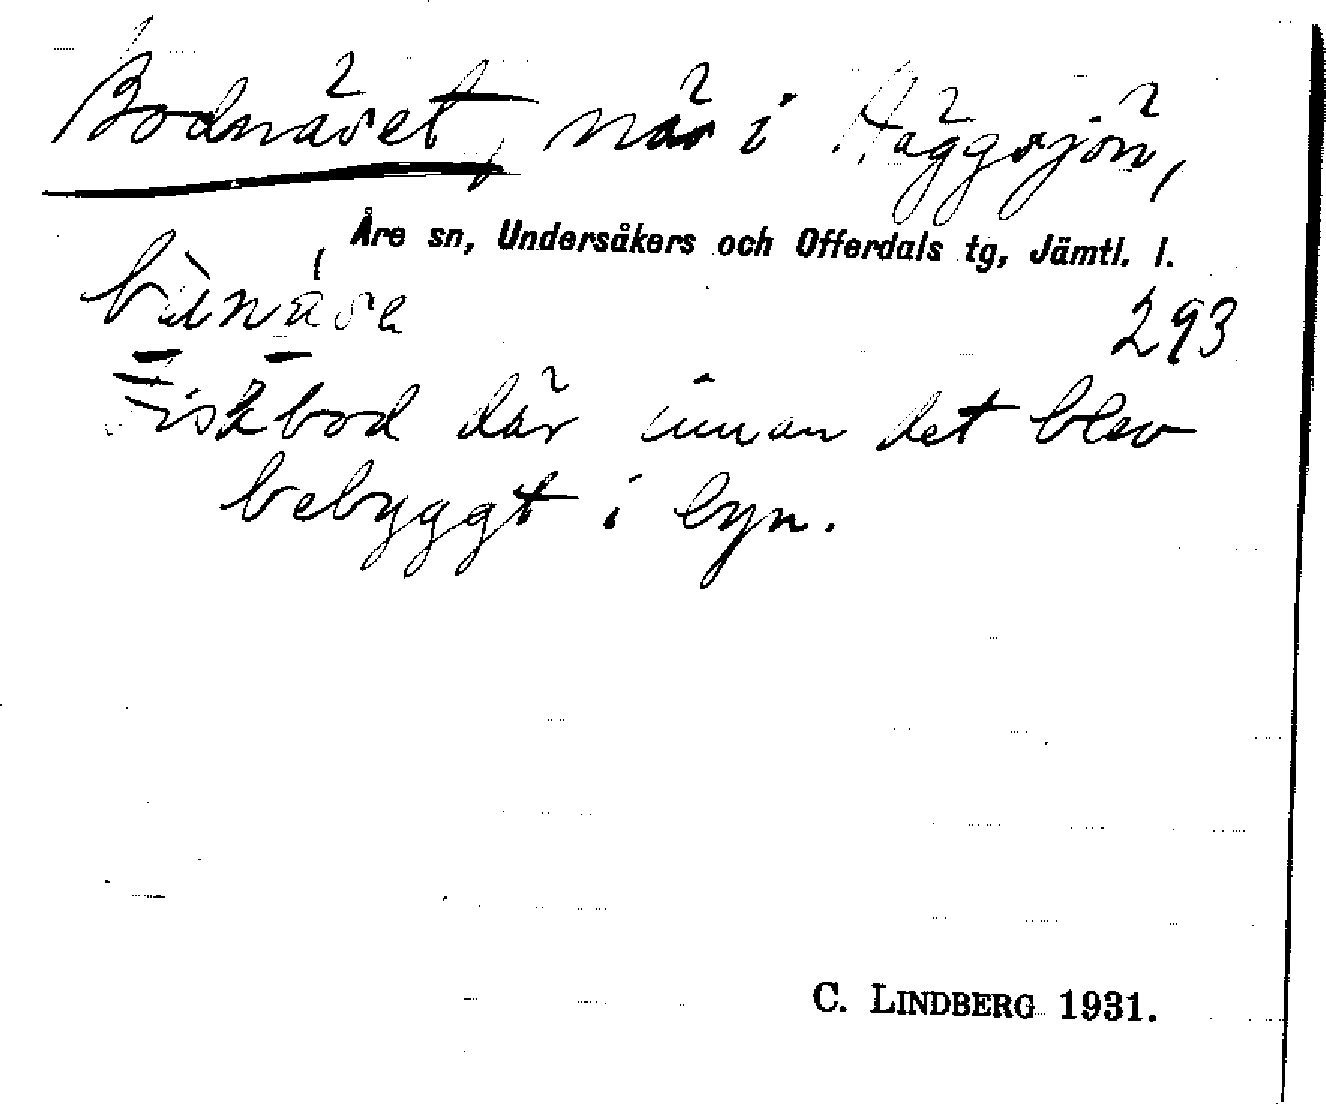 Bodnäset, näs i Häggsjön,
Åre sn, Undersåkers och Offerdals tg, Jämtl. l.
293
Fiskbod där innan det blev
bebyggt i byn.
C. LINDBERG 1931.